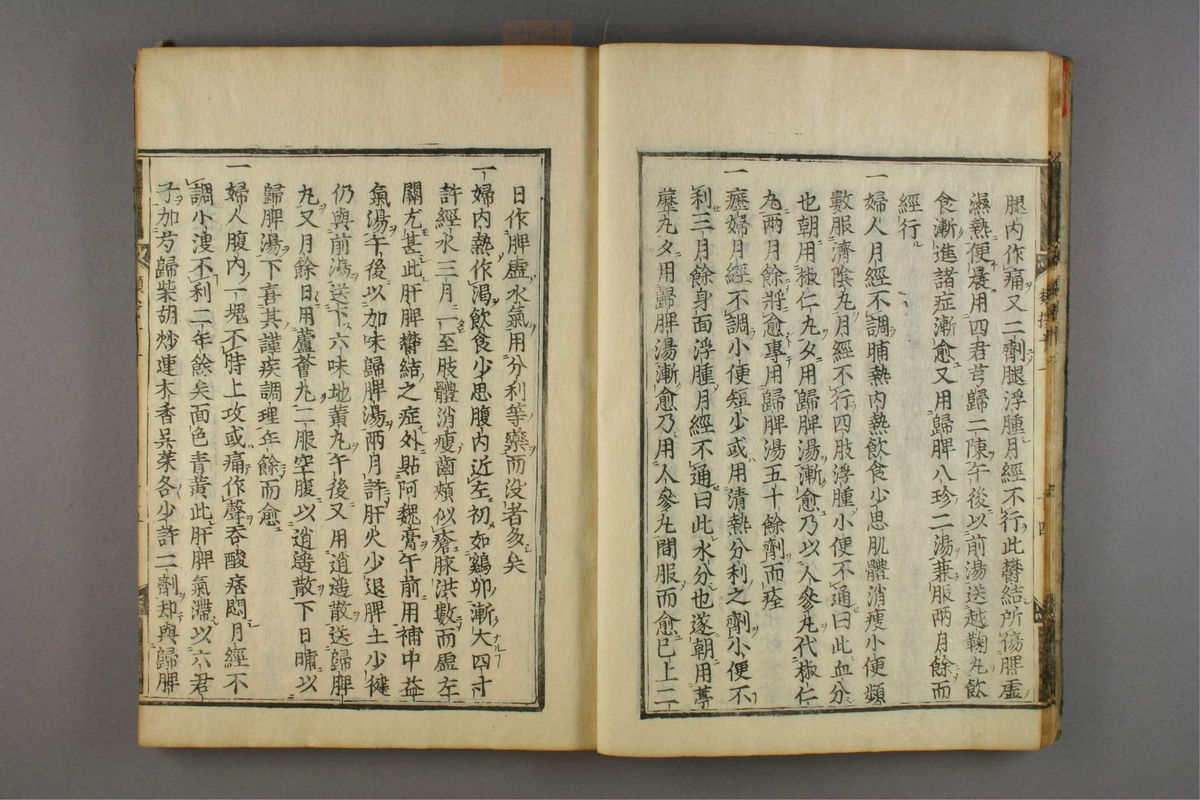 腿內作痛又二劑腿浮腫月經不行此鬱結所傷脾虛
濕熱便晨用四君芎歸二陳午後以前湯送越鞠丸飲
食漸進諸症漸愈又用歸脾八珍二湯兼服兩月餘而
經行
一婦人月經不調晡熱內熱飲食少思肌體消瘦小便頻
數服濟陰丸月經不行四肢浮腫小便不通曰此血分
也朝用椒仁丸夕用歸脾湯漸愈乃以人參丸代椒仁
丸兩月餘將愈專用歸脾湯五十餘劑而痊
一㾮婦月經不調小便短少或用清熱分利之劑小便不
利三月餘身面浮腫月經不通曰此水分也遂朝用葶
藶丸夕用歸脾湯漸愈乃用人參丸間服而愈已上二
日作脾虛水氣用分利等藥而沒者多矣
一婦內熱作渴飲食少思腹內近左初如鷄卵漸大四寸
許經水三月一至肢體消瘦齒頰似瘡脉洪數而虛左
關尤甚此肝脾鬱結之症外貼阿魏膏午前用補中益
氣湯午後以加味歸脾湯兩月許肝火少退脾土少健
仍與前湯送下六味地黃丸午後又用逍遙散送歸脾
丸又月餘日用蘆薈丸二服空腹以逍遙散下日晡以
歸脾湯下喜其謹疾調理年餘而愈
一婦人腹內一塊不時上攻或痛作聲吞酸痞悶月經不
調小溲不利二年餘矣面色青黃此肝脾氣滯以六君
子加芎歸柴胡炒連木香吳茱各少許二劑却與歸脾